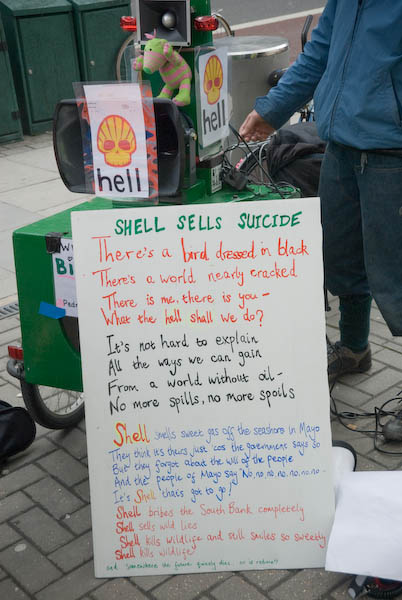 hell
hell
SHELL SELLS SUICIDE
There's a bird dressed in black
There's a world nearly cracked
There is me, there is you -
What the hell shall we do?
It's not hard to explain
All the ways we can gain
From a world without oil -
No more spills, no more spoils
Shell smells sweet gas off the seashore in Mayo
They think it's theirs just 'cos the government says so
But they forgot about the will of the people
And the people of Mayo say "No, no, no, no, no, no -
It's Shell that's got to go!
Shell bribes the South Bank completely
Shell sells wild lies
Shell kills wildlife and still smiles so sweetly
Shell kills wildlife